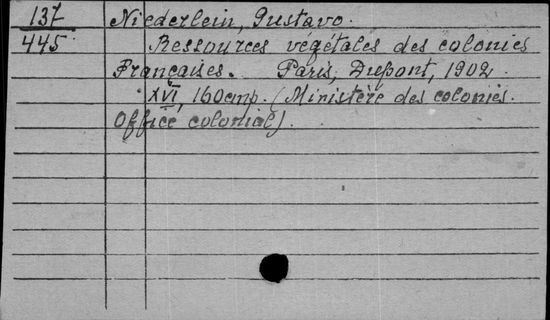 137 Niederlein, Gustavo.
445 Ressources végétales des colonies
Françaises. Paris, Dupont, 1902
XVI, 160 стр. (Ministère des colonies.
Office colonial).